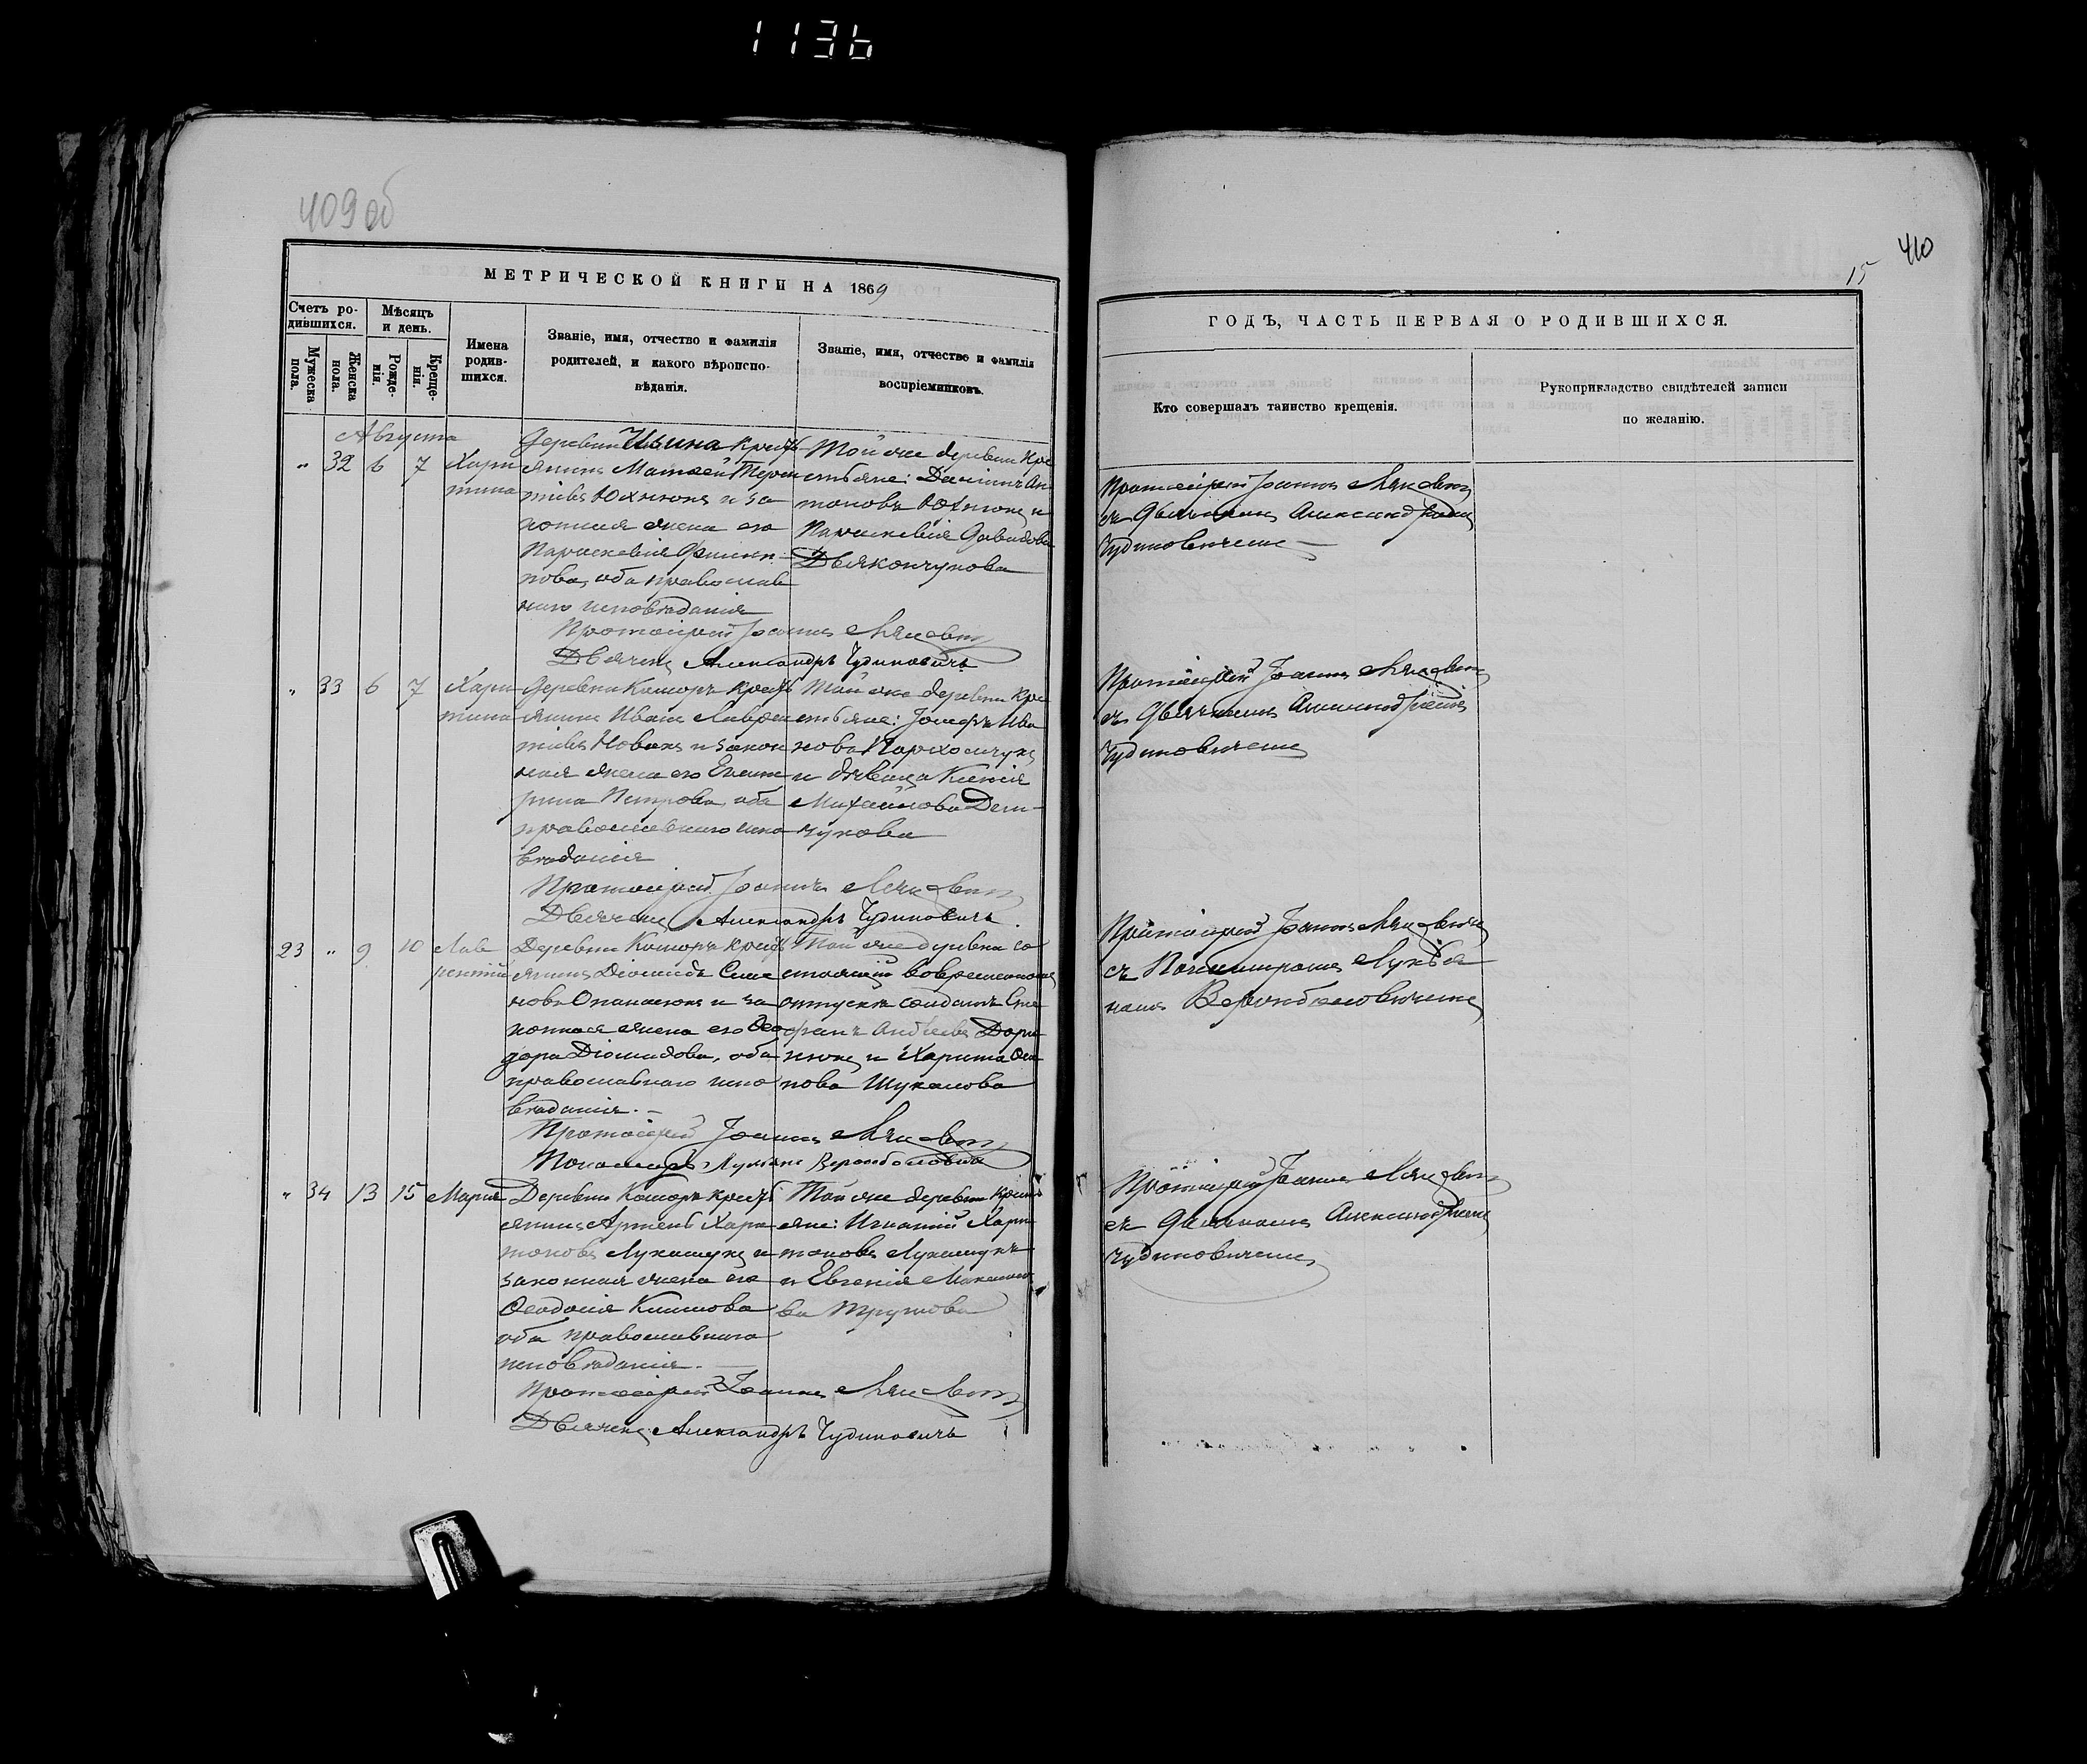 1136
409 об
МЕТРИЧЕСКОЙ КНИГИ НА 1869
Счетъ ро-
дившихся.
Мѣсяцъ
и день.
Мужеска
пола.
Женска
пола.
Рожде-
нія.
Креще-
нія.
Имена
родив-
шихся.
Званіе, имя, отчество и фамилія
родителей, и какого вѣроиспо-
вѣданія.
Званіе, имя, отчество и фамилія
воспріемниковъ.
Августа
„ 32 6 7
Хари
тина
Деревни Ильина кресть
янинъ Матвей Терен
тіевъ Юхнюкъ и за
конная жена его
Параскевія Филип
пова, оба православ
наго исповѣданія
Той же деревни кре
стьяне: Даміанъ Ан
тоновъ Юхнюкъ и
Параскевія Давидова
Дьякончукова
Протоіерей Іоаннъ
Дьячекъ Александръ Чудиновичъ
„ 33 6 7
Хари
тина
Деревни Коморъ кресть
янинъ Иванъ Лаврен
тіевъ Новакъ и закон
ная жена его Екате
рина Петрова, оба
православнаго испо
вѣданія
Той же деревни кре
стьяне: Іосифъ Ива
новъ Пархомчукъ
и дѣвица Ксенія
Михайлова Дем-
чукова
Протоіерей Іоаннъ
Дьячекъ Александръ Чудиновичъ
23 „ 9 10
Лав
рентій
Деревни Коморъ кресть
янинъ Діомидъ Симе
новъ Опанасюкъ и за
конная жена его Ѳео
дора Діомидова, оба
православнаго испо
вѣданія. —
Той же деревни со
стоящій во временномъ
отпускѣ солдатъ Сте
фанъ Андреевъ Доро
нюкъ и Харита Оси
пова Шукалова
Протоіерей Іоаннъ
Пономарь Лукіанъ
„ 34 13 15
Марія
Деревни Коморъ кресть
янинъ Артемъ Хари
тоновъ Лукашукъ и
законная жена его
Ѳеодосія Климова
оба православнаго
исповѣданія. —
Той же деревни кресть
яне: Игнатій Хари
тоновъ Лукашукъ
и Евгенія Максимо
ва Трутова
Протоіерей Іоаннъ
Дьячекъ Александръ Чудиновичъ
410
15
ГОДЪ, ЧАСТЬ ПЕРВАЯ О РОДИВШИХСЯ.
Кто совершалъ таинство крещенія.
Рукоприкладство свидѣтелей записи
по желанію.
Протоіерей Іоаннъ
съ Дьячкомъ Александромъ
Чудиновичемъ —
Протоіерей Іоаннъ
съ Дьячкомъ Александромъ
Чудиновичемъ
Протоіерей Іоаннъ
съ Пономаремъ Лукіа
номъ
Протоіерей Іоаннъ
съ Дьячкомъ Александромъ
Чудиновичемъ